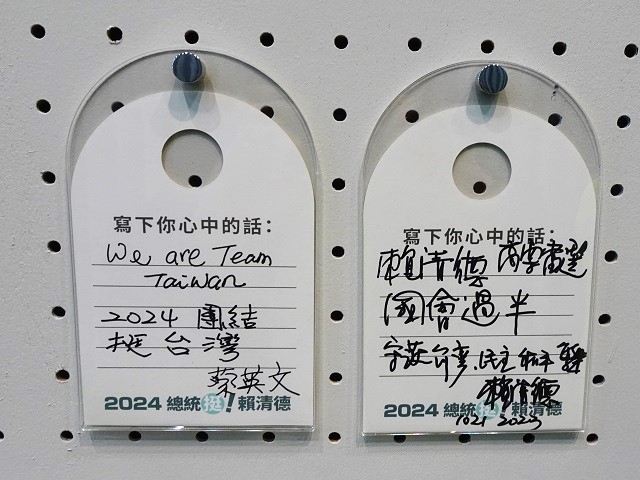 寫下你心中的話：
We are Team
Taiwan
2024 團結
挺台灣
蔡英文
2024 總統挺！賴清德
寫下你心中的話：
賴清德 當選
國會過半
守護台灣．民主和平
賴清德
2024 總統挺！賴清德
1021 2023